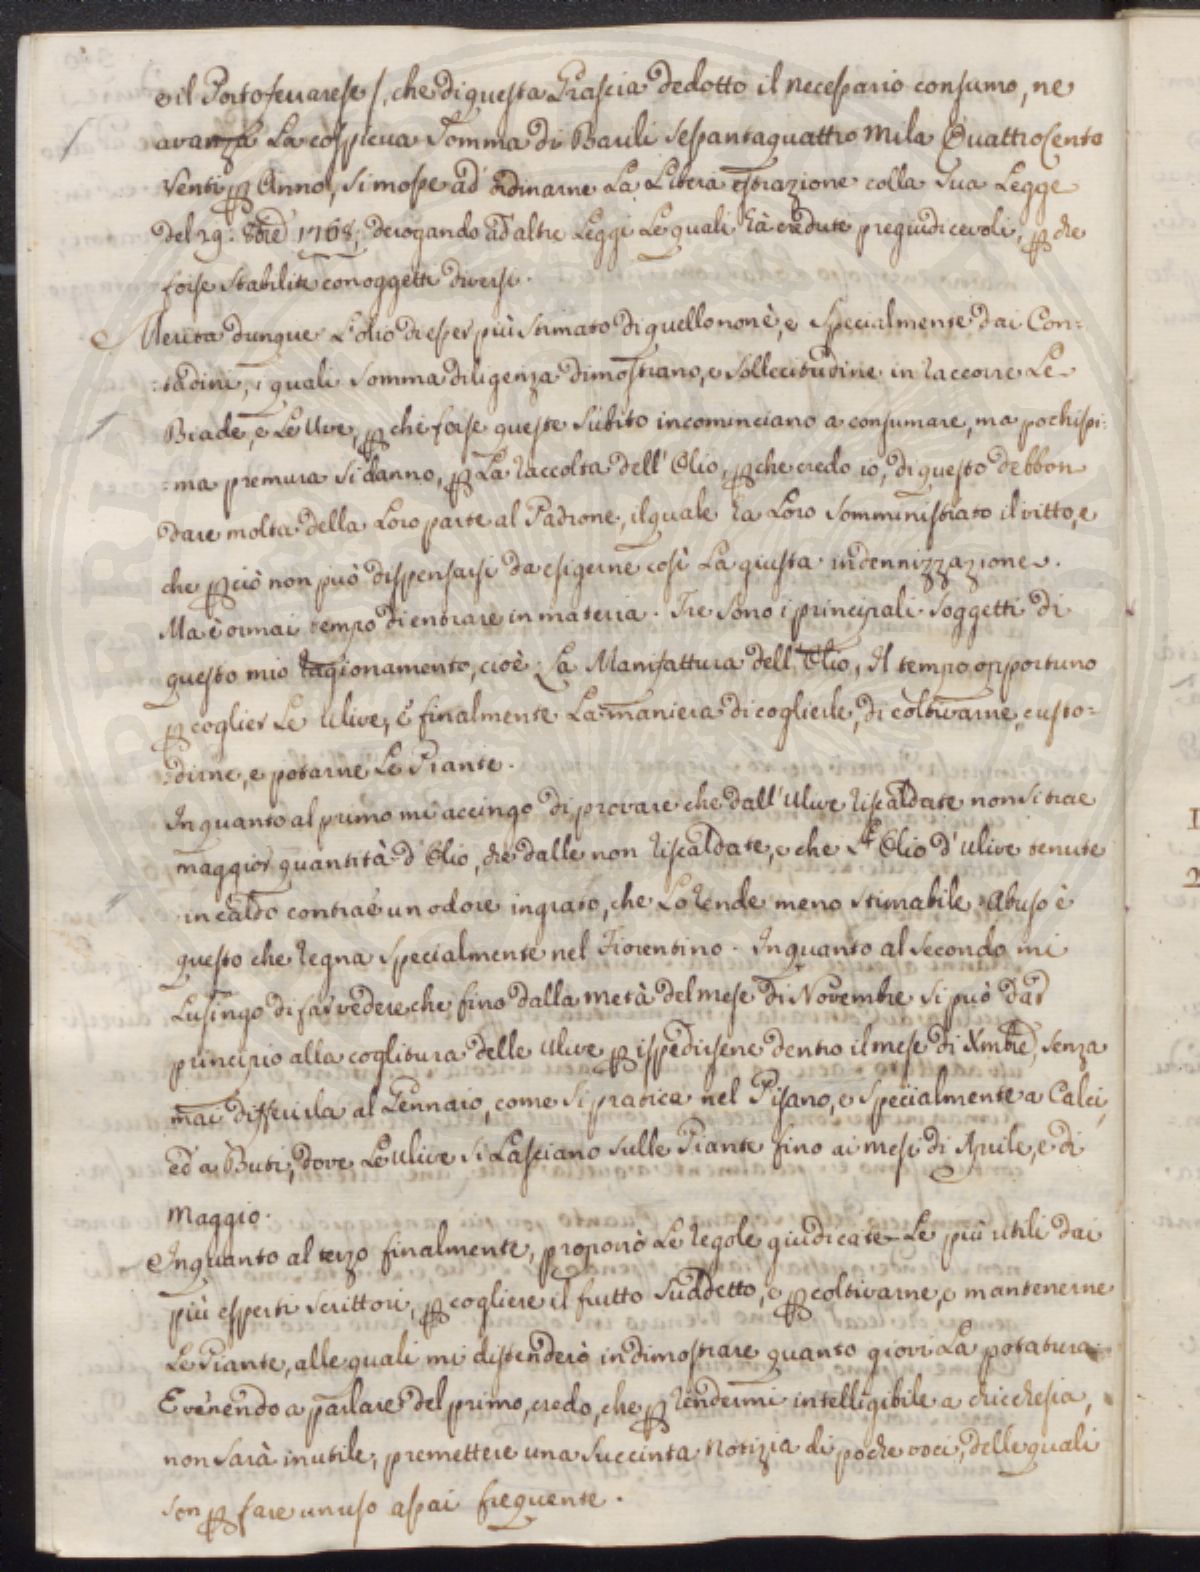 e il Portoferrarese /, che di questa Grascia dedotto il necessario consumo, ne
avanza La cospicua Somma di Barili Sessantaquattro Mila Quattrocento
Venti ꝑ Anno, si mosse ad ordinarne La Libera estrazione colla Sua Legge
del 29: 8bre 1768; derogando ad altre Leggi Le quali hà credute pregiudicevoli, ꝑche
forse stabilite con oggetti diversi.
Merita dunque L'olio di esser più stimato di quello non è, e Specialmente dai Con=
=tadini, i quali Somma diligenza dimostrano, e sollecitudine in raccorre Le
Biade, e Le Uve, ꝑchè forse queste subito incominciano a consumare, ma pochissi=
=ma premura si danno, ꝑ La raccolta dell'Olio, ꝑche credo io, di questo debbon
dare molta della Loro parte al Padrone, il quale ha Loro Somministrato il vitto, e
che ꝑciò non può dispensarsi da esigerne così La giusta indennizzazione.
Ma è ormai tempo di entrare in materia. Tre sono i principali soggetti di
questo mio ragionamento, cioè: La Manifattura dell'Olio, Il tempo opportuno
ꝑ coglier Le Ulive, e finalmente La maniera di coglierle, di coltivarne, custo=
=dirne, e potarne Le Piante.
In quanto al primo mi accingo di provare che dall'Ulive riscaldate non si trae
maggior quantità d'Olio, che dalle non riscaldate, e che L'Olio d'Ulive tenute
in caldo contrae un odore ingrato, che Lo rende meno stimabile. Abuso è
questo che regna specialmente nel Fiorentino. In quanto al secondo mi
Lusingo di far vedere che fino dalla metà del mese di Novembre si può dar
principio alla coglitura delle Ulive ꝑ ispedirsene dentro il mese di Xmbre, senza
mai differirla al Gennaio, come si pratica nel Pisano, e Specialmente a Calci,
ed a Buti, dove Le Ulive si Lasciano sulle Piante fino ai mesi di Aprile, e di
Maggio.
In quanto al terzo finalmente, proporrò Le regole giudicate Le più utili dai
più esperti scrittori, ꝑ cogliere il frutto suddetto, e ꝑ coltivarne, e mantenerne
Le Piante, alle quali mi distenderò in dimostrare quanto giovi La potatura.
E venendo a parlare del primo, credo, che ꝑ rendermi intelligibile a chicchesia,
non sarà inutile, premettere una succinta notizia di poche voci, delle quali
son ꝑ fare un uso assai frequente.